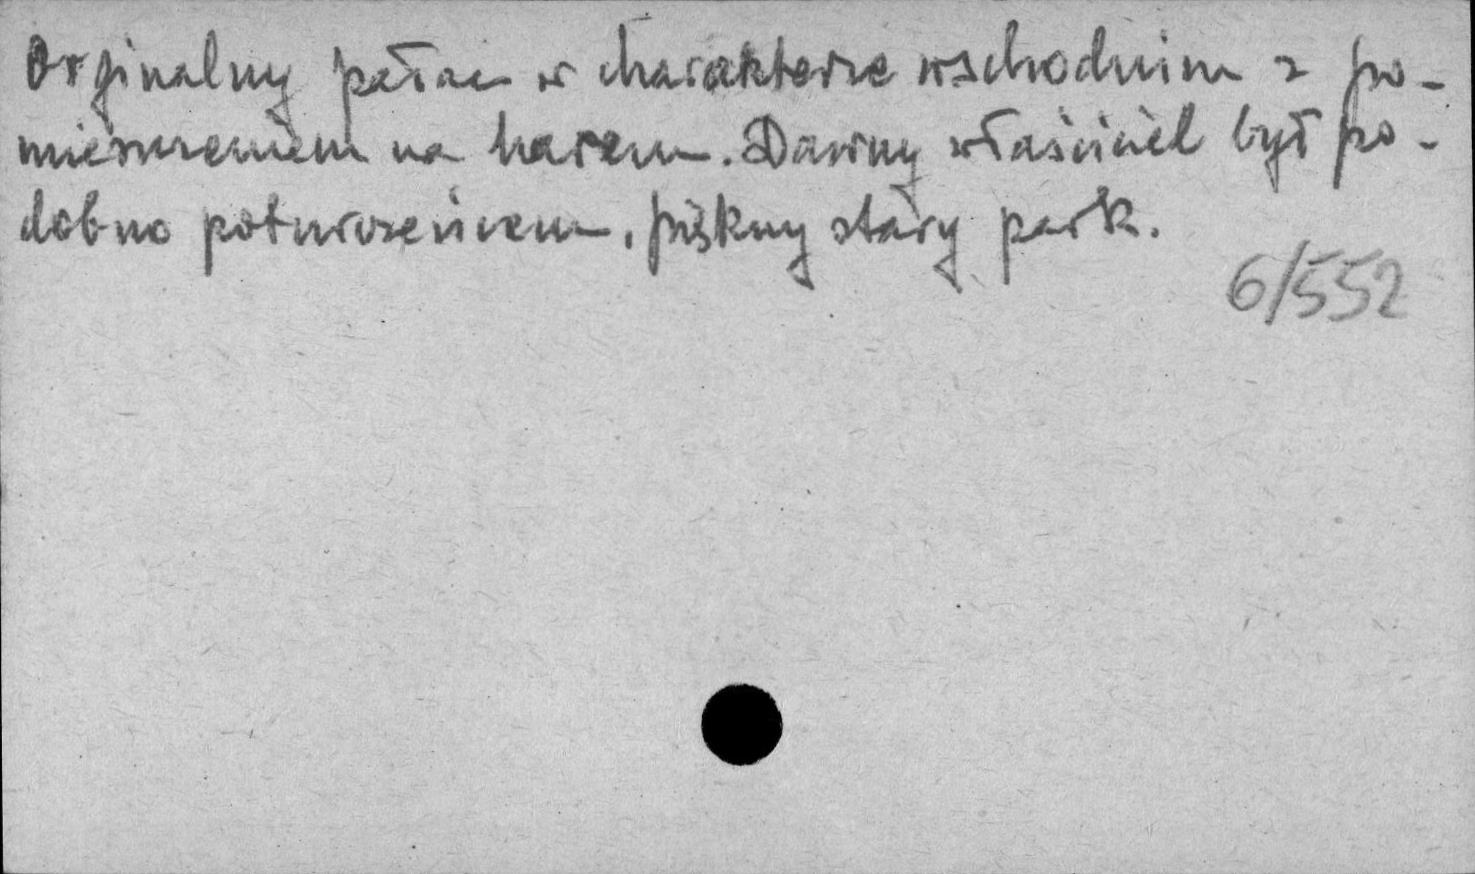 Orginalny pałac w charakterze wschodnim z po-
mieszczeniem na harem. Dawny właściciel był po-
dobno poturczeńcem, piękny stary park.
6/552